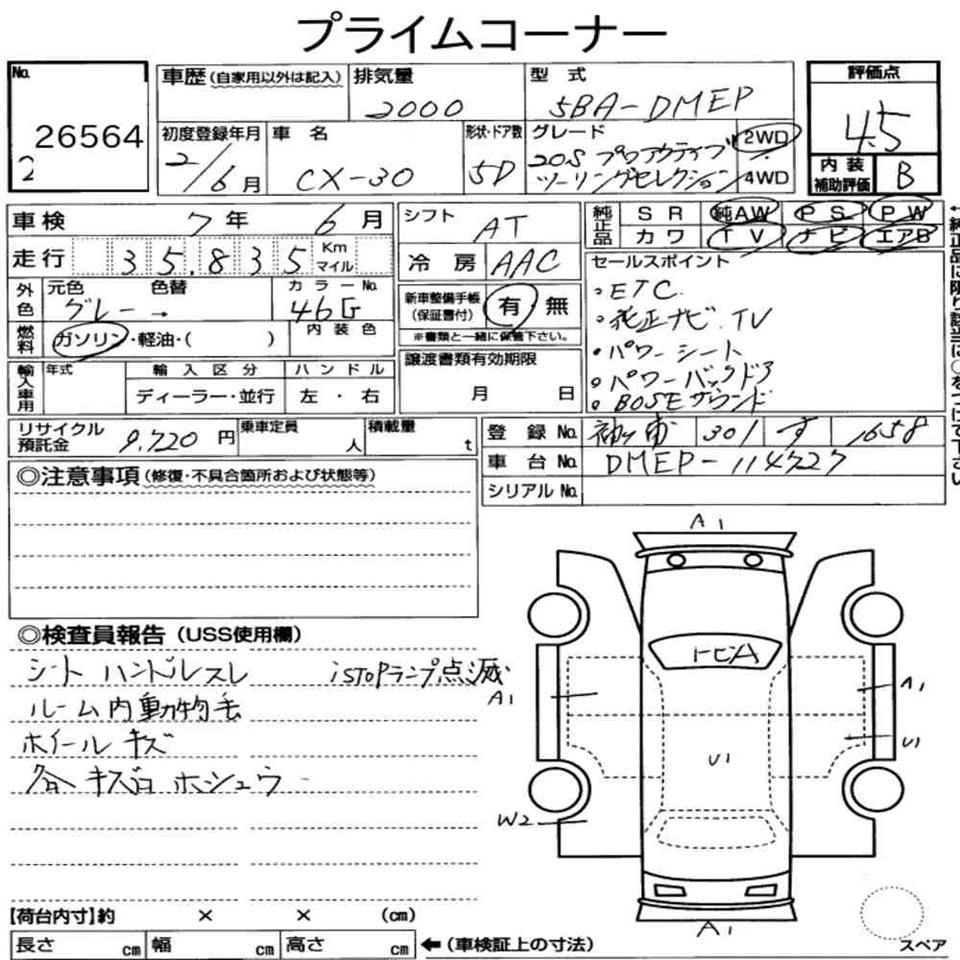 プライムコーナー
No.
26564
2
車歴 (自家用以外は記入)
排気量
2000
型 式
5BA-DMEP
評価点
4.5
初度登録年月
2/6月
車 名
CX-30
形状・ドア数
5D
グレード
20S プロアクティブ
ツーリングセレクション
2WD
4WD
内 装
補助評価
B
車検 7年 6月
走行 35,835 Km
マイル
外色
元色 色替
グレー →
カラーNo.
46G
燃料
ガソリン・軽油・( )
内 装 色
輸入車用
年式
輸 入 区 分
ディーラー・並行
ハ ン ド ル
左 ・ 右
シフト
AT
冷 房 AAC
新車整備手帳
(保証書付)
有 無
※書類と一緒に保管下さい。
譲渡書類有効期限
月 日
純正品
SR 純AW PS PW
カワ TV ナビ エアB
セールスポイント
・ETC.
・純正ナビ.TV
・パワーシート
・パワーバックドア
・BOSEサウンド
←純正品に限り該当に○をつけて下さい
リサイクル
預託金 9,720 円
乗車定員
人
積載量
t
登 録 No. 袖ヶ浦 301 す 1658
車 台 No. DMEP-114727
シリアル No.
◎注意事項 (修復・不具合箇所および状態等)
◎検査員報告 (USS使用欄)
シート ハンドルスレ iSTOPランプ点滅
ルーム内動物毛
ホイール キズ
各 キズ凹 ホシュウ
A1
トビA
A1
A1
U1
U1
W2
A1
スペア
【荷台内寸】約 × × (cm)
長さ cm 幅 cm 高さ cm ←(車検証上の寸法)